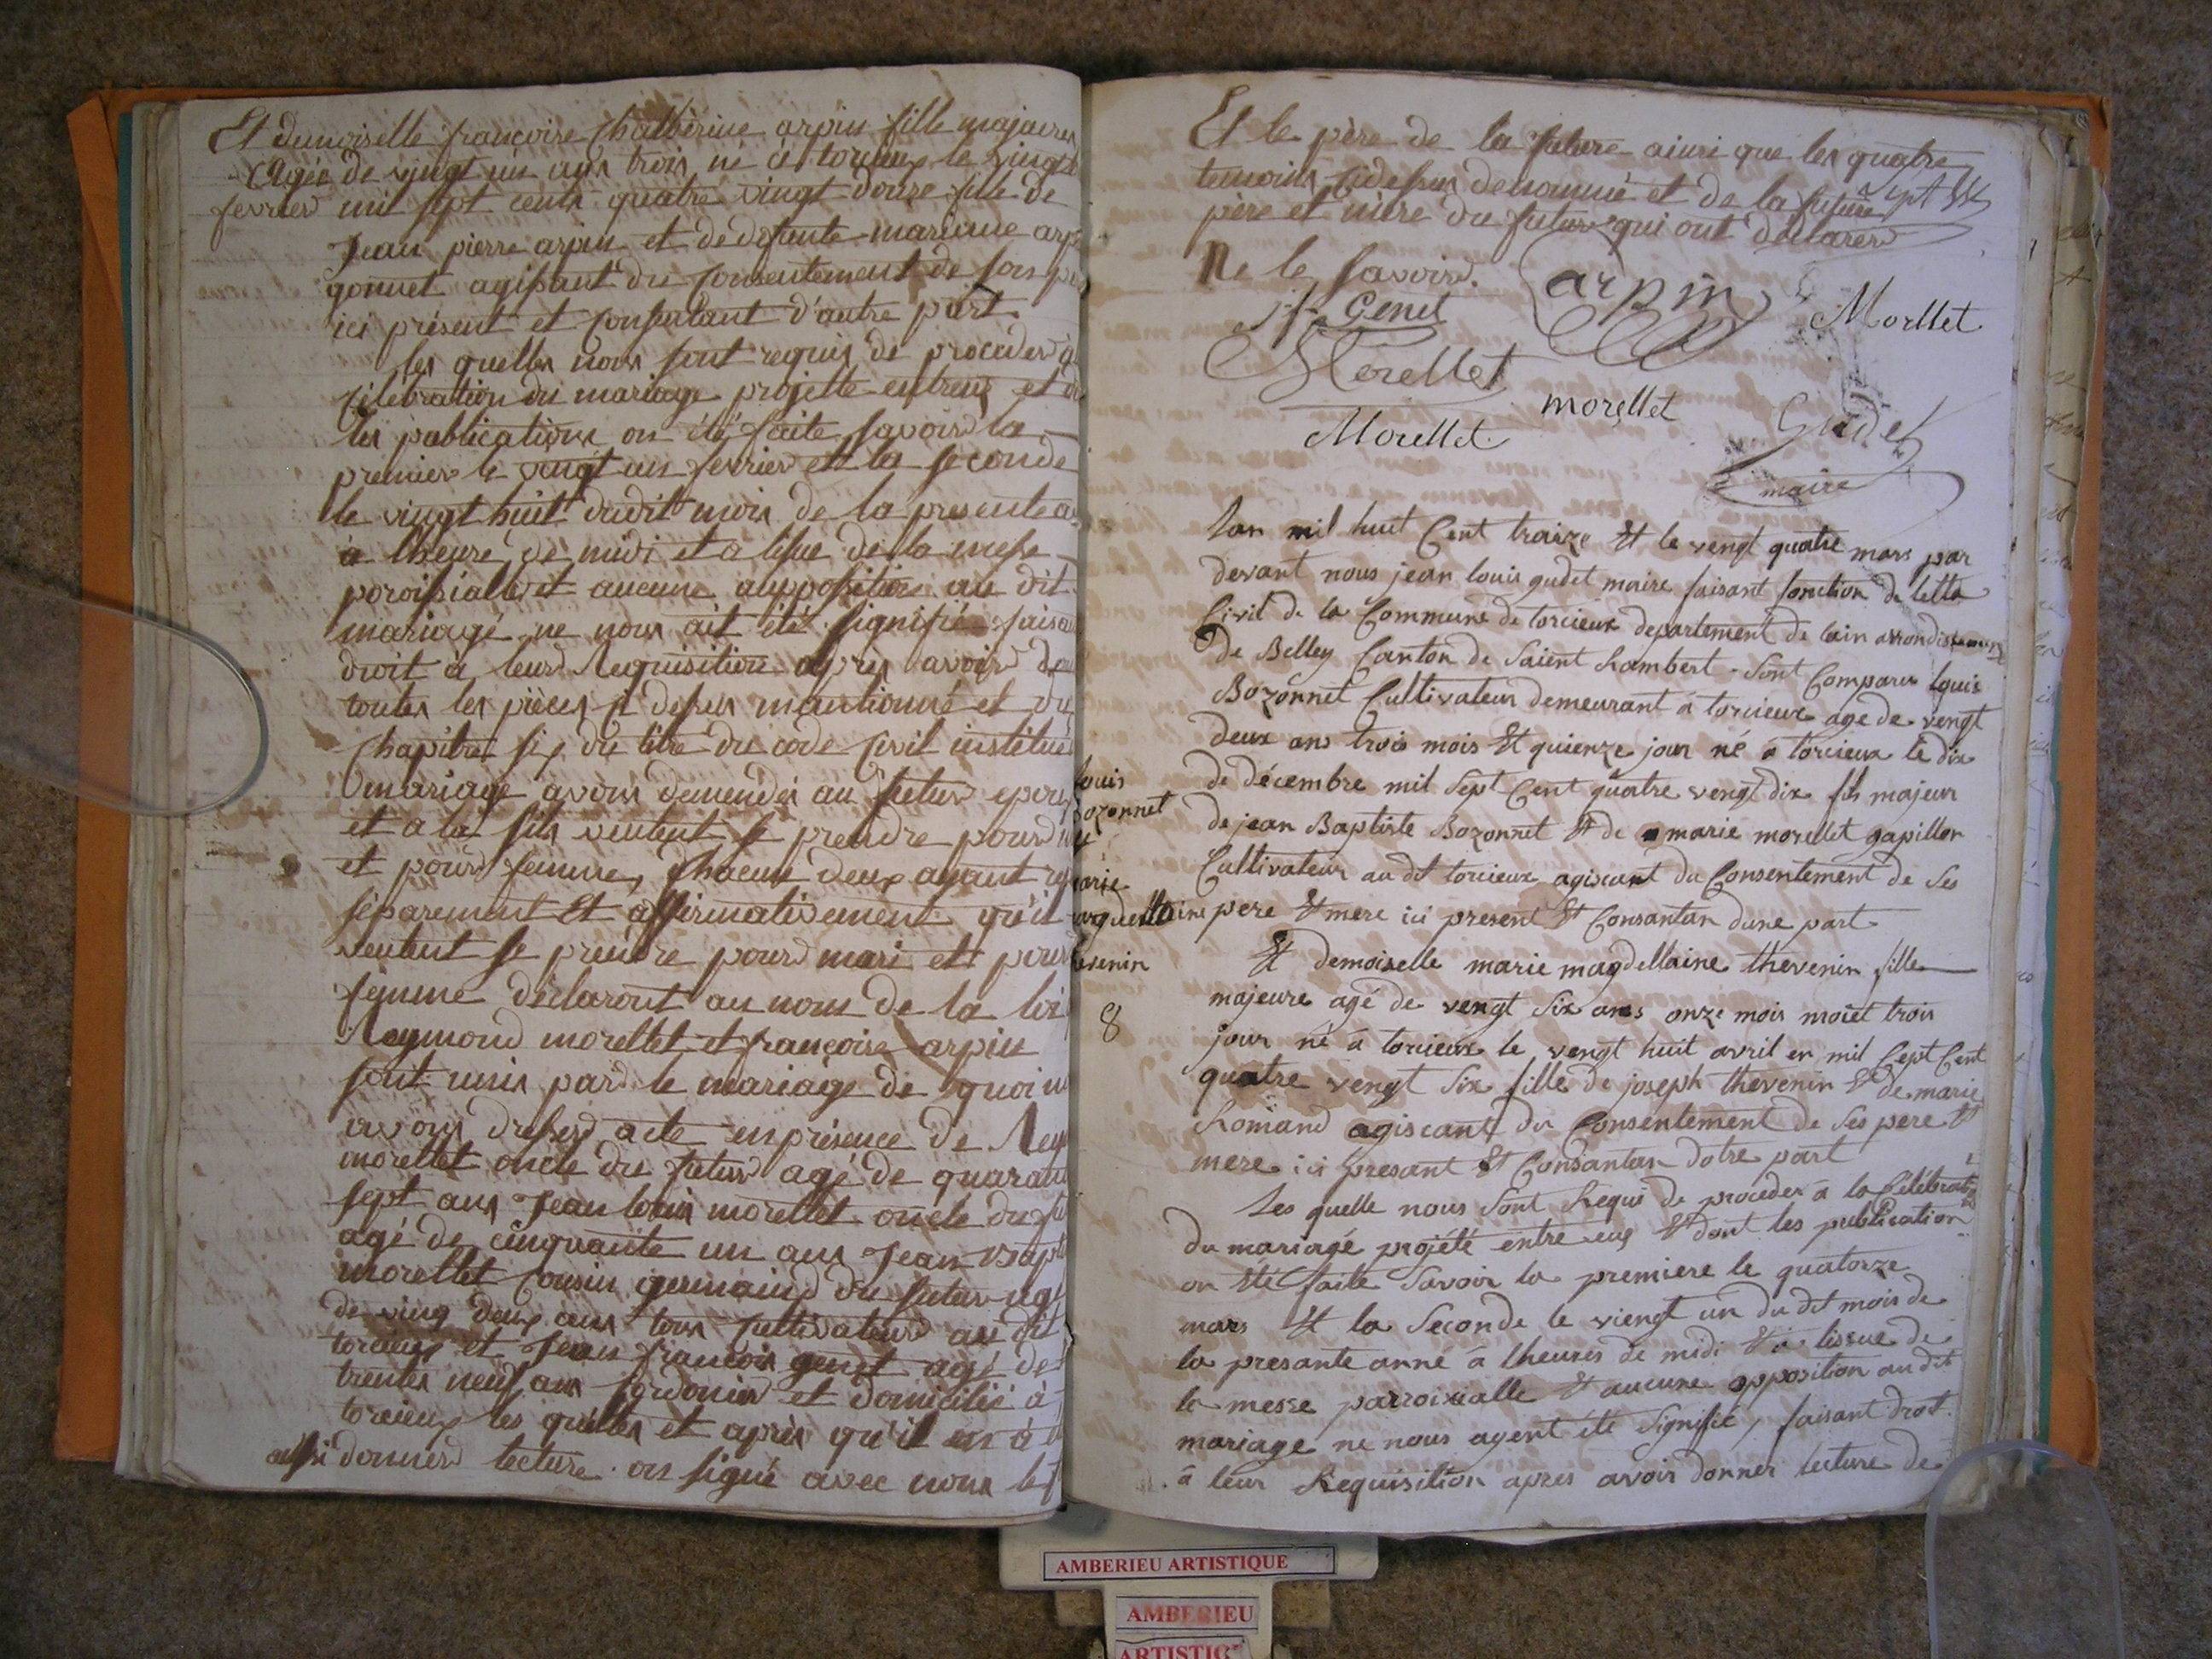 Et demoiselle francoise Chatherine arpin fille majaires
Agée de vingt un ans trois né à torcieux le vingt
fevrier mil sept cents quatre vingt douze fille de
Jean pierre arpin et de defunte mariane
gonnet agissant du Consentement de son
ici présent et Consentant d'autre part
les quelles nous sont requis de proceder
Célébration du mariage projetté entreux et
les publications on été faite savoir la
premier le vingt un fevrier et la seconde
le vingt huit dudit mois de la presente
à lheure de midi et a lissue de la messe
poroissialle et aucune aupposition au dit
mariage ne nous ait été signifié
droit à leurs Requisition après avoir
toutes les pièces Ci dessus mantionné et du
Chapitre six du titre du code Civil institué
mariage avons demendés au futur
et a la sils veulent se prendre pour
et pour femme, Chacun deux ayant
séparement Et affirmativement qu'il
veulent se prendre pour mari et pour
femme déclaront au nom de la loi
Reymond morellet et françoise arpin
sont unis par le mariage de quoi
avons dressés acte en présence de
morellet oncle du futur agé de
sept ans Jean louis morellet oncle du
agé de cinquante un ans Jean
morellet Cousin germain du futur
de ving deux ans tous Cultivateur au dit
torcieux et Jean francois genet agé de
trentes neuf ans Cordonier et domicilié à
torcieux les quelles et après qu'il en à
aussi donner lecture on signé avec nous le
Et le père de la future ainsi que les quatre
temoins Cidessus denommé et de la future
père et mère du futur qui ont déclarer
Ne le Savoir.
Genet arpin Morllet
Morellet
morellet
Morellet Gudet
maire
lan mil huit Cent traize Et le vengt quatre mars par
devant nous jean louis gudet maire faisant fonction de letta
Civil de la Commune de torcieux departement de lain arrondissement
De Belley Canton de Saient Rambert. Sont Comparu louis
Bozonnet Cultivateur demeurant à torcieux age de vengt
deux ans trois mois Et quienze jour né a torcieux le dix
de décembre mil Sept Cent quatre vengt dix fils majeur
de jean Baptiste Bozonnet Et de marie morellet gapillon
Cultivateur au dt torcieux agiscant du Consentement de Ses
pere Et mere ici present Et Consantan dune part
louis
Bozonnet
Et demoiselle marie magdellaine thevenin fille
majeure agé de vengt Six ans onze mois moiet trois
8
jour né a torcieux le vengt huit avril en mil Sept Cent
quatre vengt Six fille de joseph thevenin Et de marie
Romand agiscant du Consentement de Ses pere Et
mere ici presant Et Consantan dotre part
Les quelle nous Sont Requi de procéder à la Célébration
du mariagé projété entre eux Et dont les publication
on Eté faite Savoir la premiere le quatorze
mars Et la Seconde le viengt un du dt mois de
la presante anné a lheures de midi Et a lissue de
la messe parroixialle Et aucune opposition au dit
mariage ne nous ayent été Signifié, faisant drot
a leur Requisition apres avoir donner lecture de
AMBERIEU ARTISTIQUE
AMBERIEU